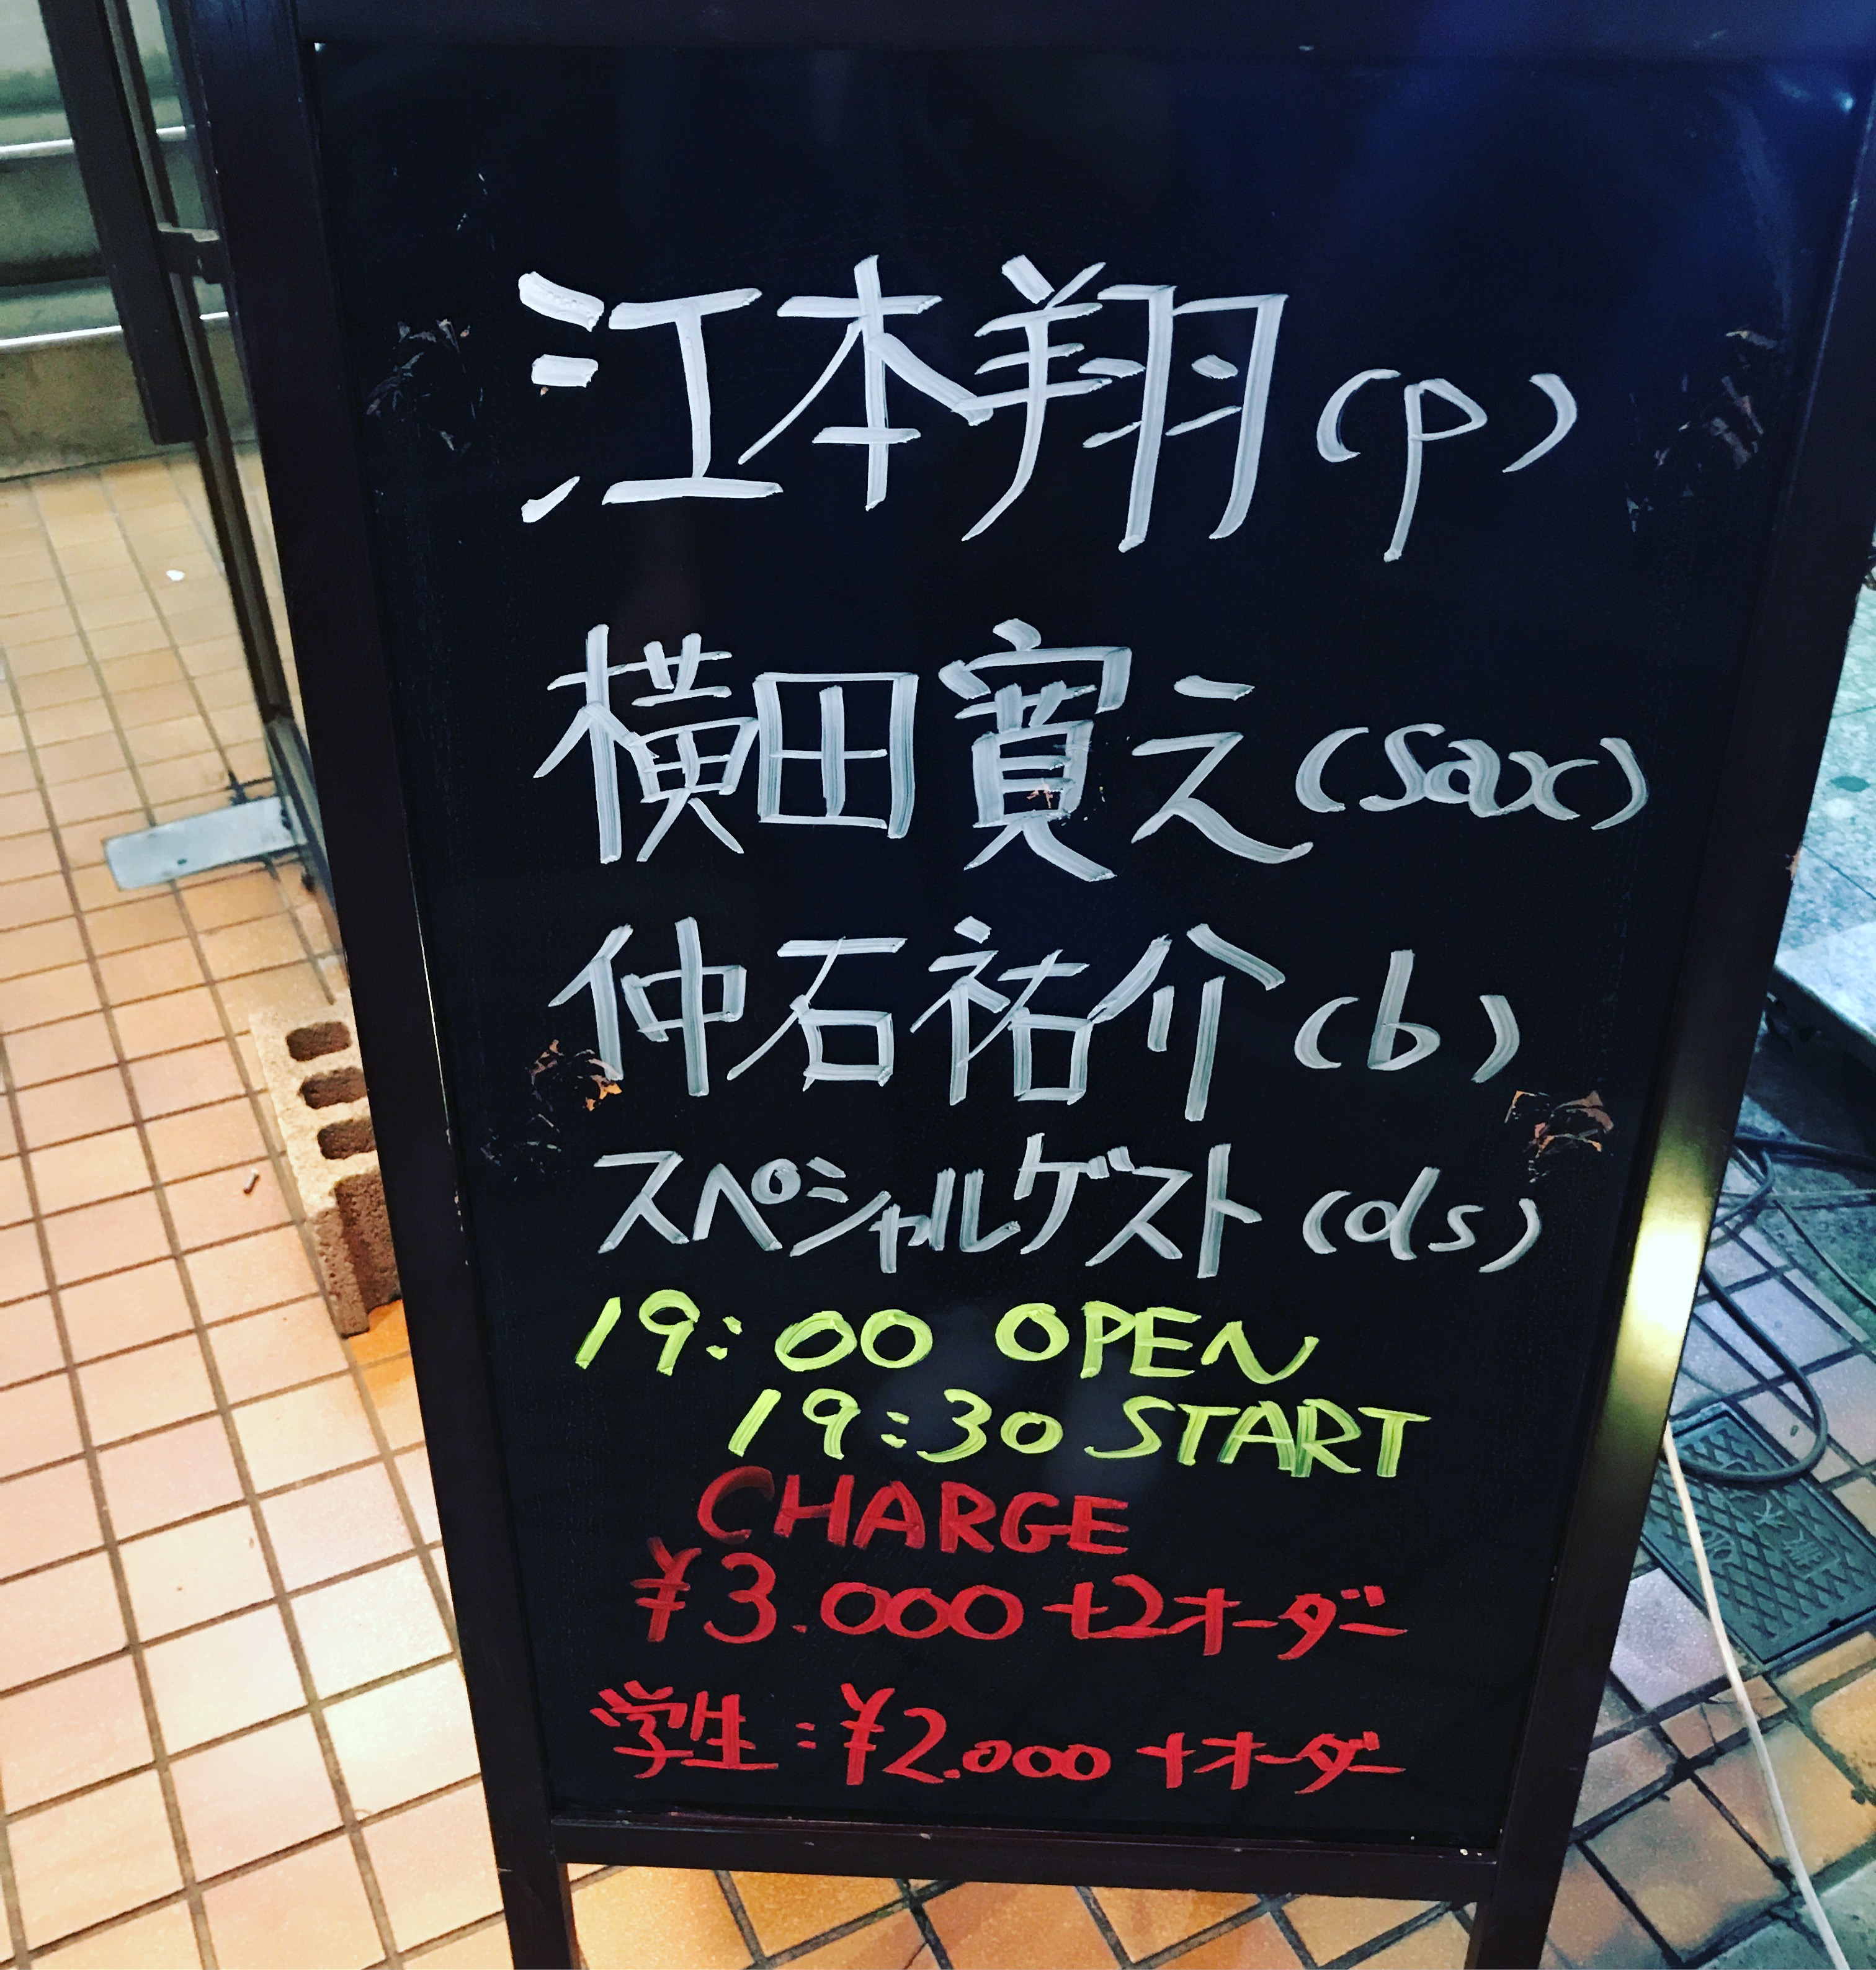 江本翔(p)
横田寛之(sax)
仲石祐介(b)
スペシャルゲスト(ds)
19:00 OPEN
19:30 START
CHARGE
¥3.000+2オーダー
学生:¥2.000+オーダー